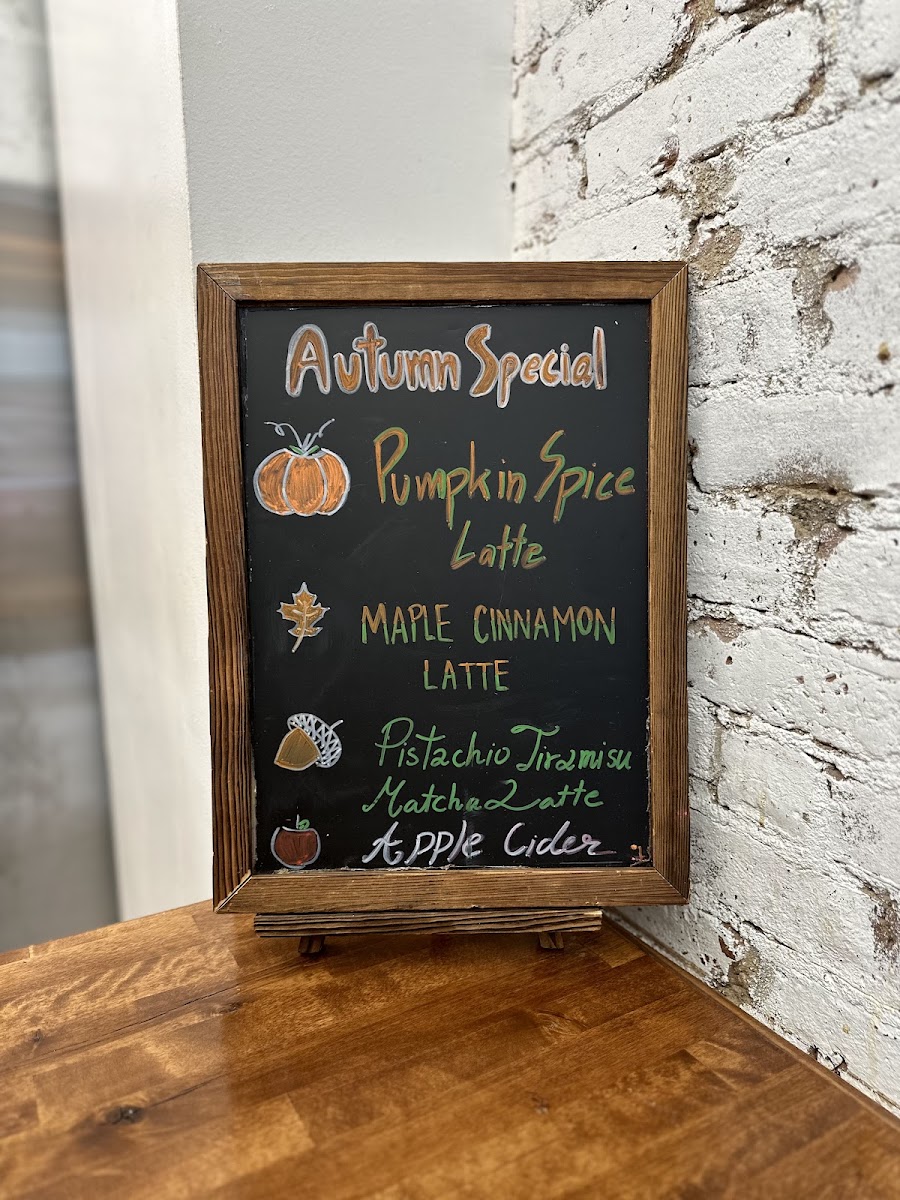 Autumn Special
Pumpkin Spice
Latte
MAPLE CINNAMON
LATTE
Pistachio Tiramisu
Matcha Latte
Apple Cider